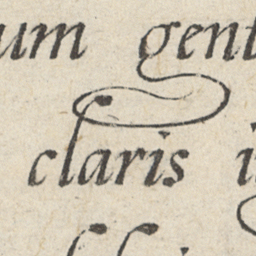 um gent
claris i